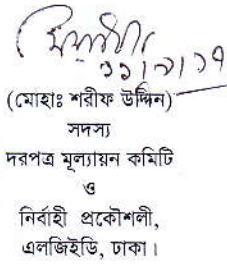 ১১।৭।১৭
(মোহাঃ শরীফ উদ্দিন)
সদস্য
দরপত্র মূল্যায়ন কমিটি
ও
নির্বাহী প্রকৌশলী,
এলজিইডি, ঢাকা।